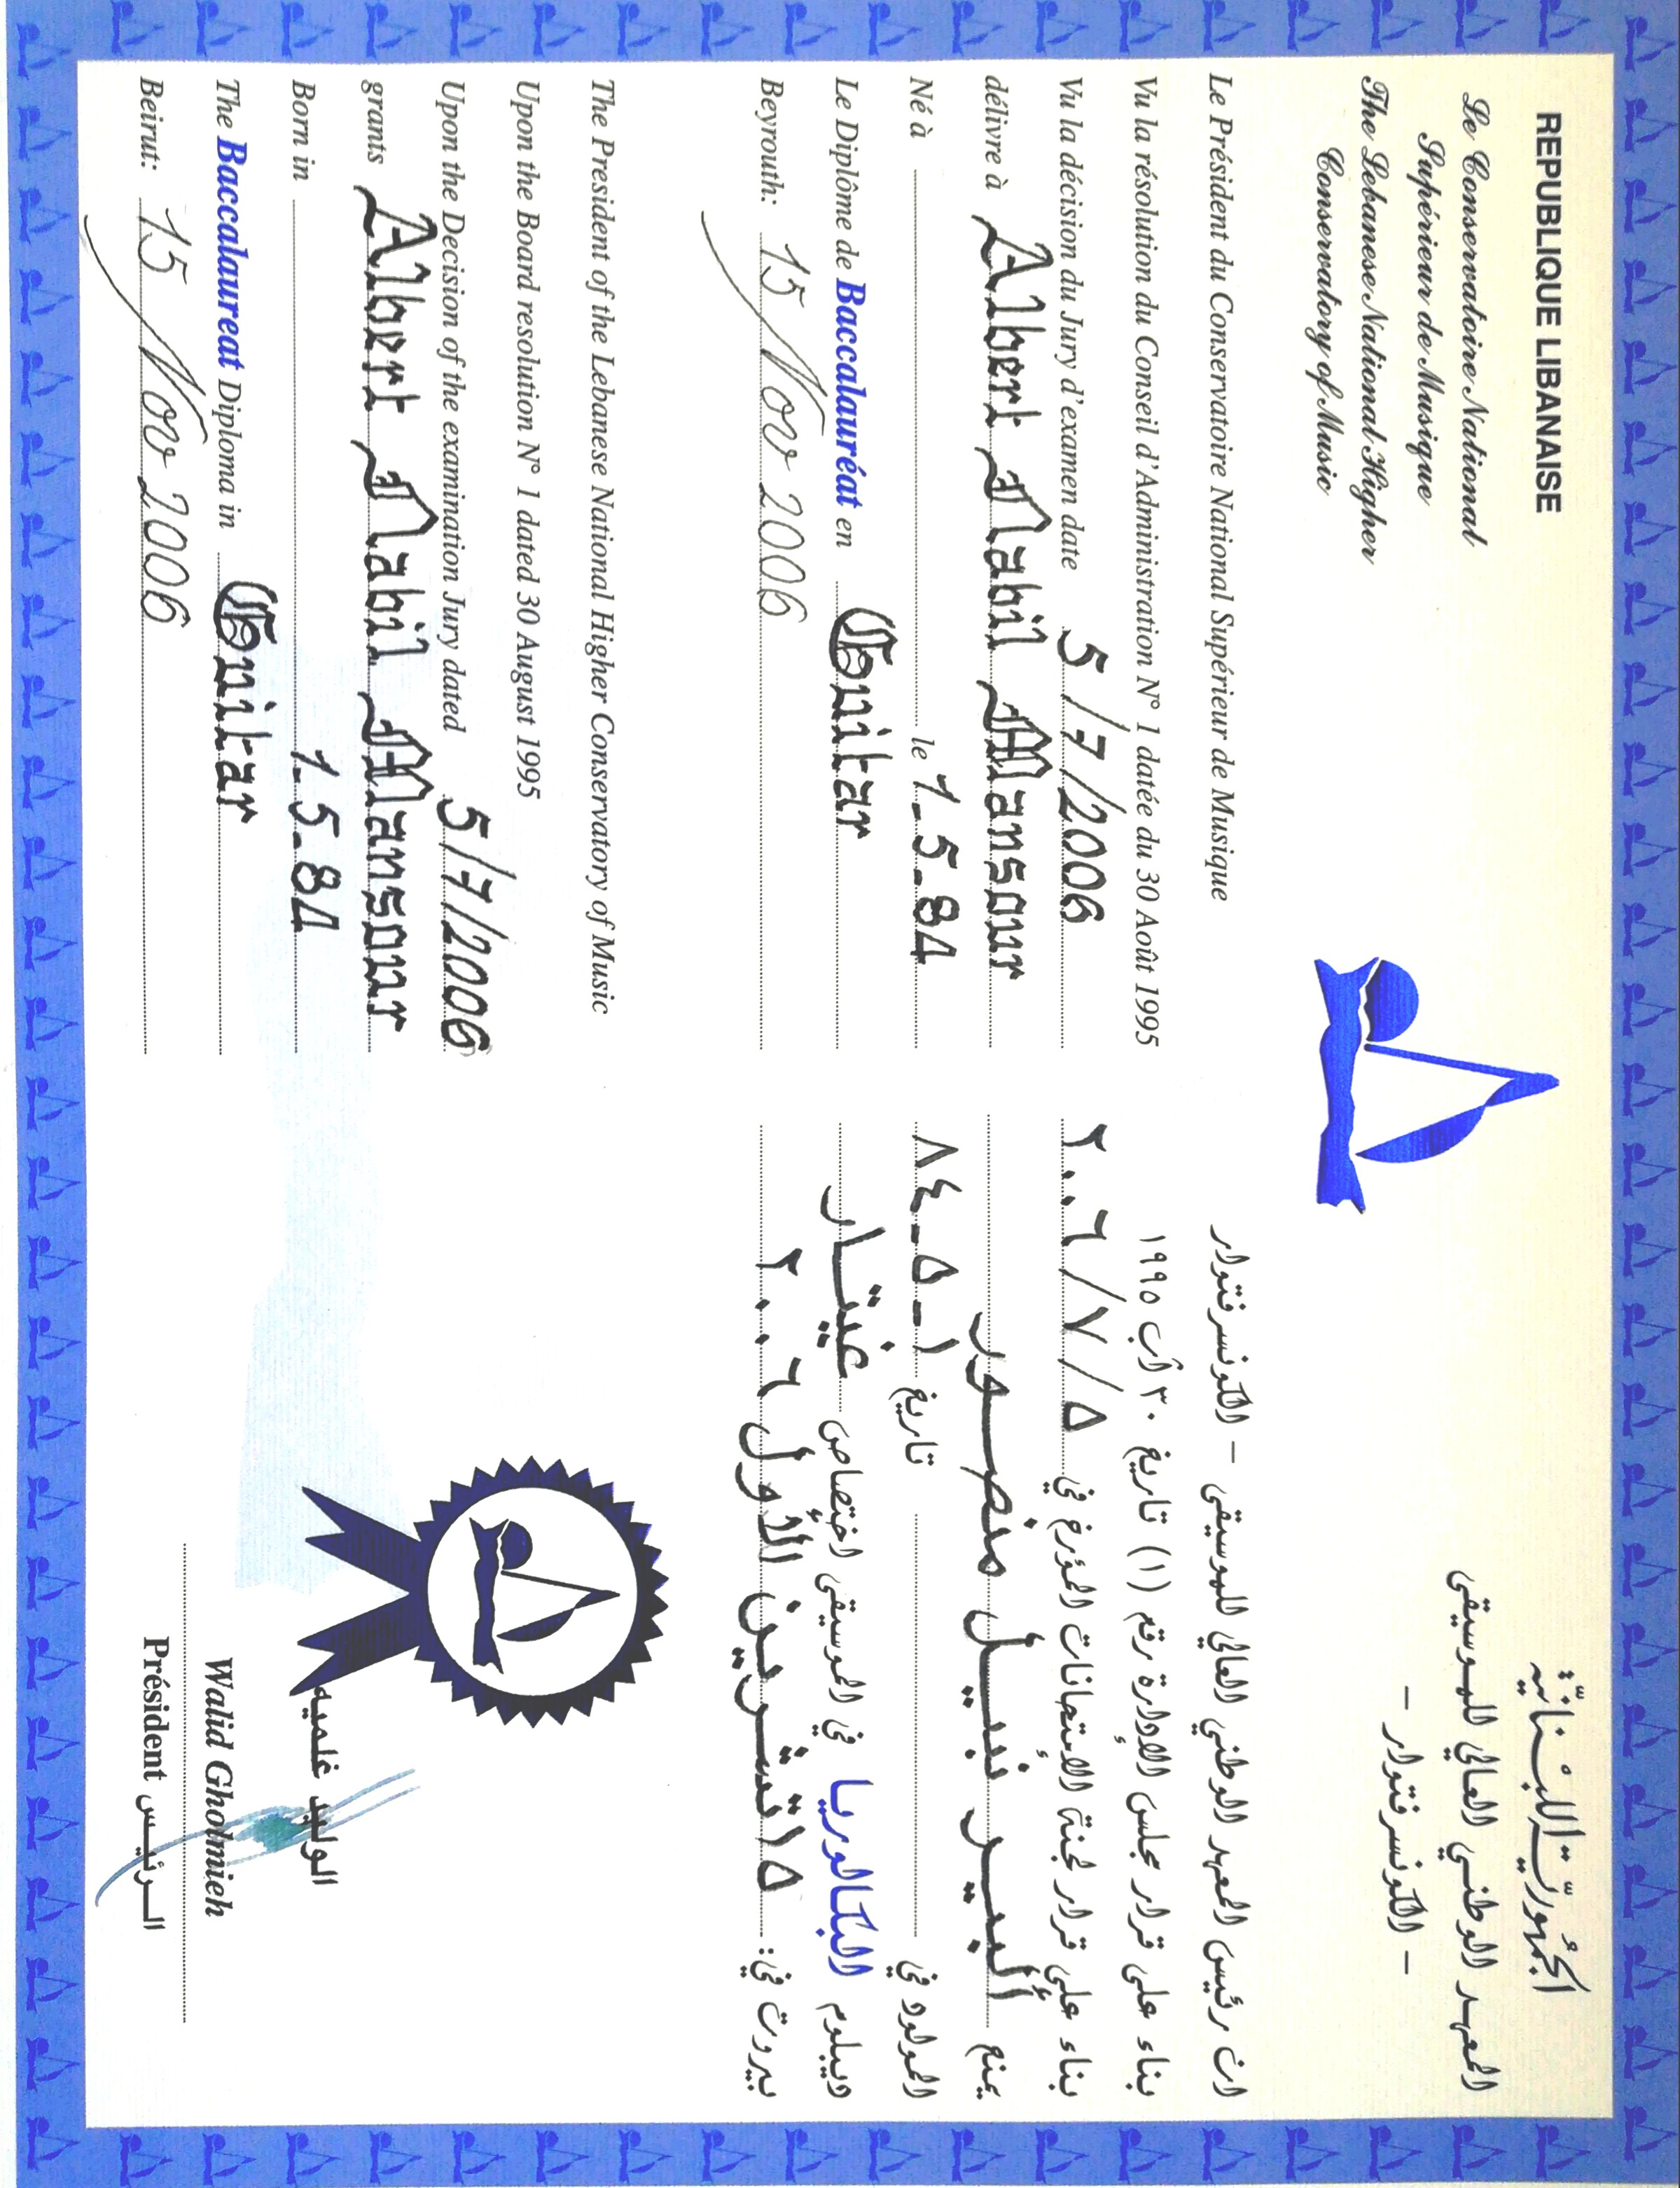 REPUBLIQUE LIBANAISE
Le Conservatoire National
Supérieur de Musique
The Lebanese National Higher
Conservatory of Music
الجمهوريّة اللبنانيّة
المعهد الوطني العالي للموسيقى
- الكونسرفتوار -
Le Président du Conservatoire National Supérieur de Musique
Vu la résolution du Conseil d'Administration N° 1 datée du 30 Août 1995
Vu la décision du Jury d'examen date 5/7/2006
délivre à Albert Nabil Mansour
Né à le 1-5-84
Le Diplôme de Baccalauréat en Guitar
Beyrouth: 15 Nov 2006
ان رئيس المعهد الوطني العالي للموسيقى - الكونسرفتوار
بناء على قرار مجلس الإدارة رقم (١) تاريخ ٣٠ آب ١٩٩٥
بناء على قرار لجنة الإمتحانات المؤرخ في ٥/٧/٢٠٠٦
يمنح ألبير نبيل منصور
المولود في تاريخ ١-٥-٨٤
ديبلوم البكالوريا في الموسيقى إختصاص غيتار
بيروت في: ١٥ تشرين الأول ٢٠٠٦
The President of the Lebanese National Higher Conservatory of Music
Upon the Board resolution N° 1 dated 30 August 1995
Upon the Decision of the examination Jury dated 5/7/2006
grants Albert Nabil Mansour
Born in 1-5-84
The Baccalaureat Diploma in Guitar
Beirut: 15 Nov 2006
الوليد غلميه
Walid Gholmieh
Président الرئيس